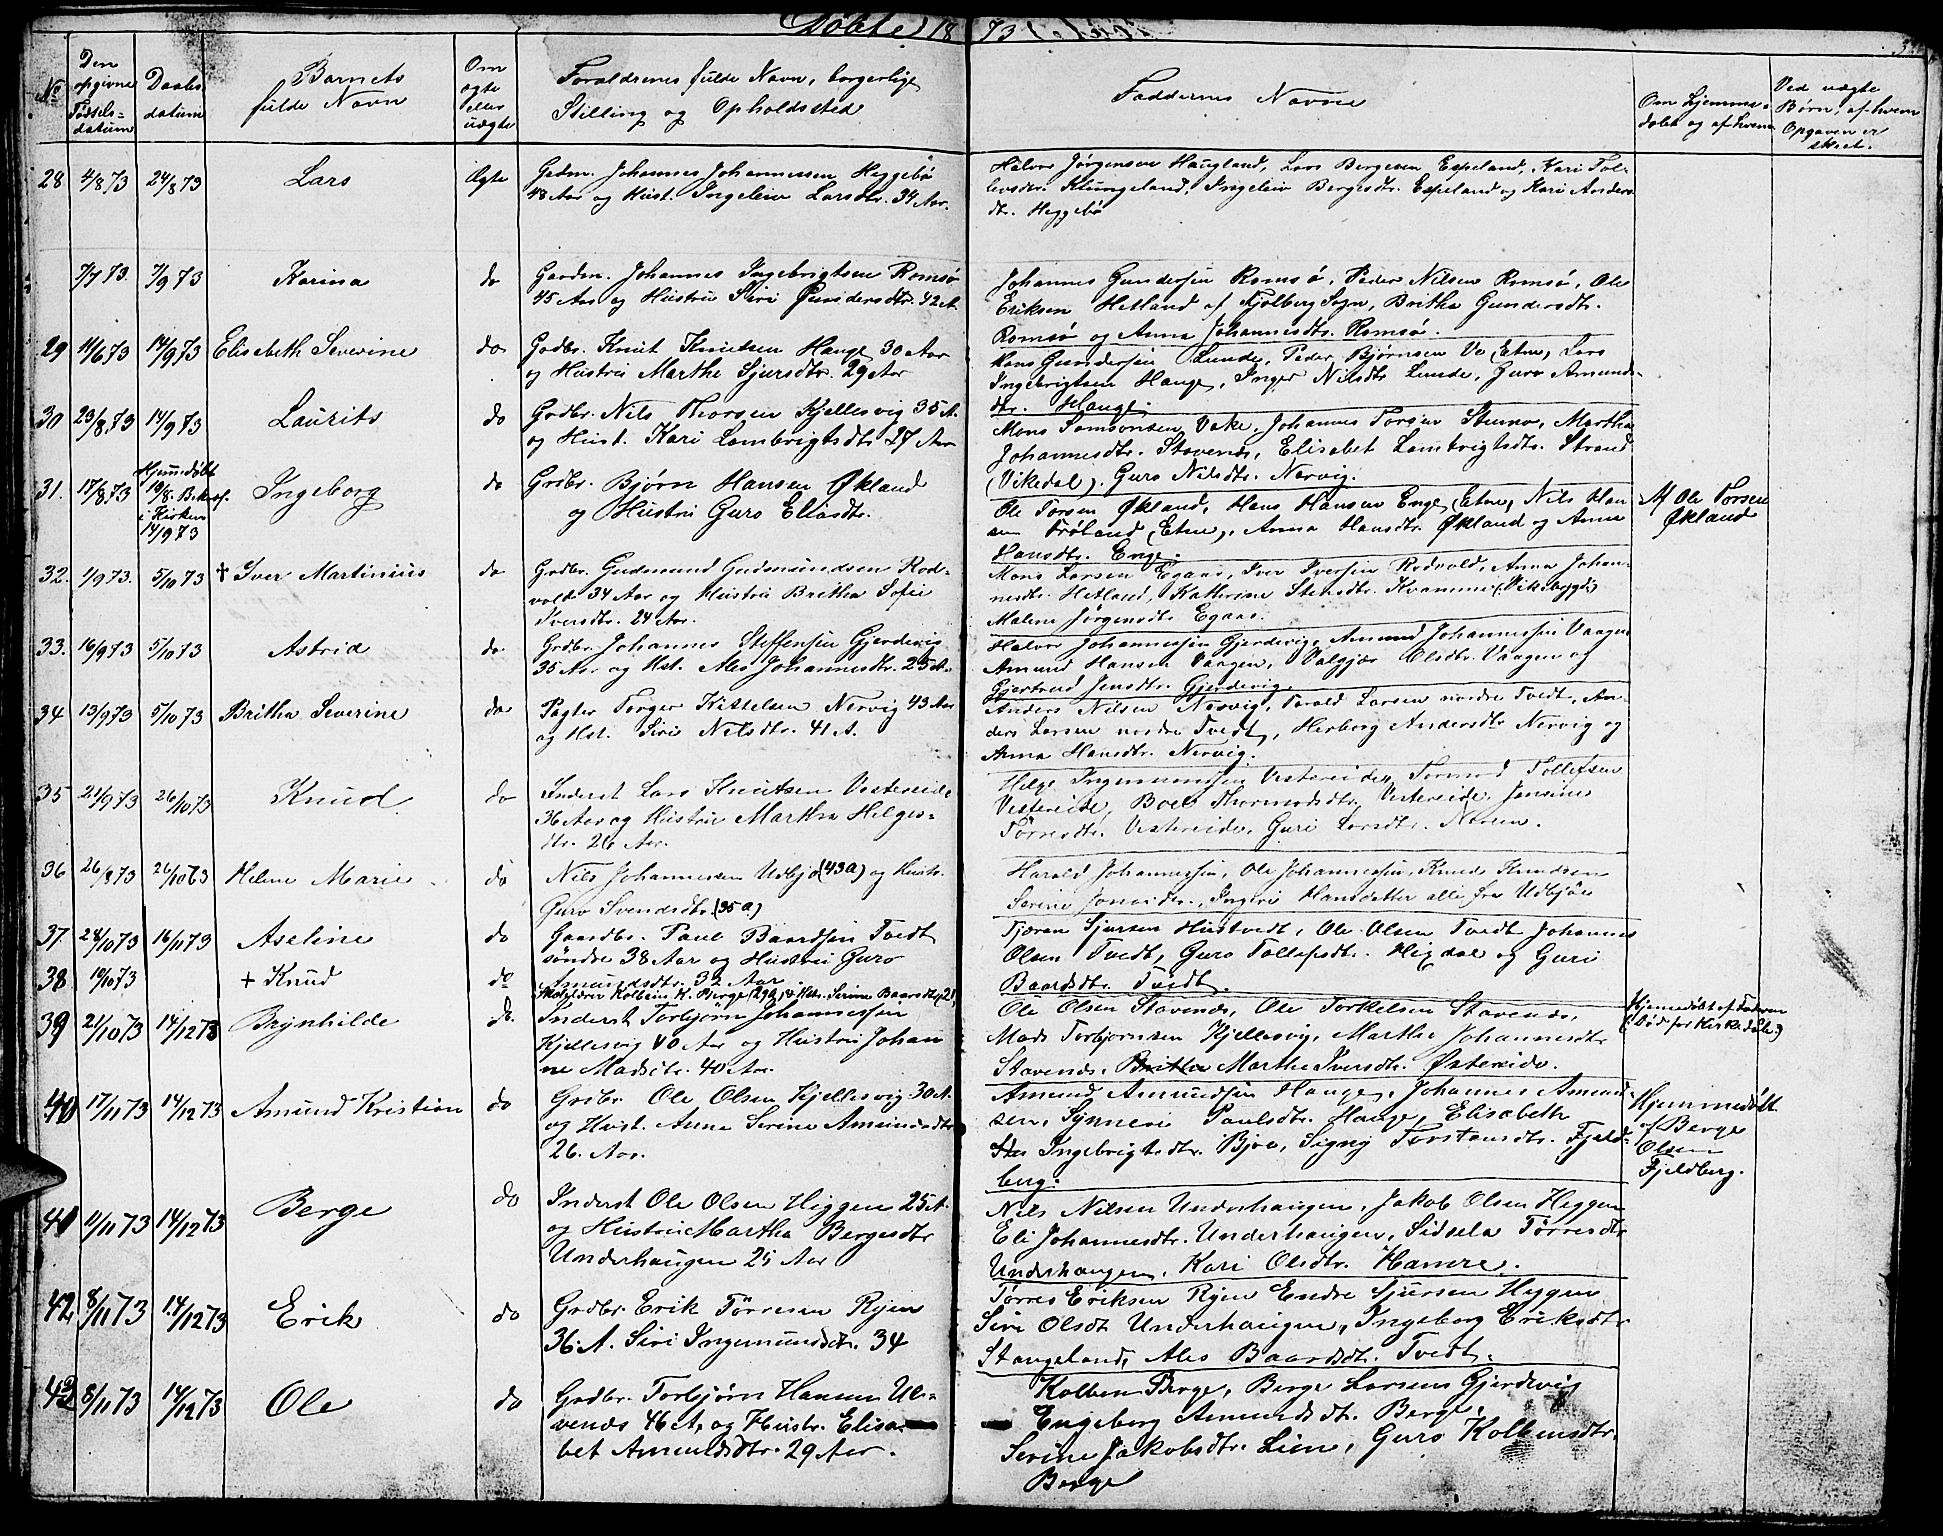 Døbte 1873
No
Den opgivne Fødsels-datum
Daabs datum
Barnets fulde Navn
Om ægte eller uægte
Forældrenes fulde Navn, borgerlige Stilling og Opholdssted
Faddernes Navne
Om hjemme-døbt og af hvem
Ved uægte Børn, af hvem Opgaven er skeet.
28 4/8 73 24/8 73 Lars Ægte Gadm. Johannes Johannessen Heggebø
48 Aar og Hust. Ingeleiv Larsdtr. 34 Aar.
Halvor Jørgensen Haugland, Lars Bergesen Espeland, Kari Tol-
levsdtr. Klungeland, Ingeleiv Bergesdtr. Espeland og Kari Anders
dtr. Heggebø
7/7 73. 7/9 73 Karina do Gardm. Johannes Ingebrigtsen Romsø
45 Aar og Hustru Siri Gundersdtr. 42 A.
Johannes Gundersen Romsø, Peder Nilsen Romsø, Ole
Eriksen Hetland af Fjelberg Sogn, Britha Gundersdtr.
Romsø og Anna Johannesdtr. Romsø.
29 11/6 73 14/9 73 Elisabeth Severine do Gadbr. Knut Knutsen Hauge 30 Aar
og Hustru Marthe Sjursdtr. 29 Aar
Hans Gundersen Lunde, Peder Bjørnsen Vo (Etne), Lars
Ingebrigtsen Hauge, Inger Nilsdtr Lunde, Guro Amunds-
dtr. Hauge.
30 23/8 73 14/9 73 Laurits do Grdbr. Nils Thorsen Kjellesvig 35 A.
og Hust. Kari Lambrigtsdtr 27 Aar
Mons Samsonsen Vake, Johannes Torsen Stumo, Martha
Johannesdtr. Stavenes, Elisabet Lambrigtsdtr. Strand
(Vikedal). Guro Nilsdtr. Nervig.
31. 17/8 73 Hjemmedøbt 19/8. Bekræf. i Kirken 14/9 73 Ingeborg do Grdbr. Bjørn Hansen Økland
og Hustru Guro Eliasdtr.
Ole Torsen Økland, Hans Hansen Enge (Etne), Nils Han
sen Frøland (Etne), Anna Hansdtr. Økland og Anna
Hansdtr. Enge.
Af Ole Torsen Økland
32. 1/9 73. 5/10 73 † Iver Martinius do Grdbr. Gudmund Gudmundsen Rod-
vold 34 Aar og Hustru Britha Sofie
Iversdtr. 24 Aar.
Mons Larsen Egaas, Iver Iversen Rodvold, Anna Johan-
nesdtr. Hetland, Kathrine Stensdtr. Kvamme (Vikebygd)
Malene Jørgensdtr Egaas.
33. 16/9 73 5/10 73 Astrid do Grdbr. Johannes Steffensen Gjerdevig
35 Aar og Hst. Ales Johannesdtr. 25 A.
Halvor Johannessen Gjerdevig, Amund Johannessen Vaagen
Amund Hansen Vaagen, Valgjær Olsdtr. Vaagen og
Gjertrud Jensdtr. Gjerdevig.
34 13/9 73 5/10 73 Britha Severine do Pagter Torger Kittelsen Nervig 43 Aar
og Hst. Siri Nilsdtr. 41 A.
Anders Nilsen Nervig, Torald Larsen nordre Tvedt, An-
ders Larsen nordre Tvedt, Herborg Andersdtr Nervig og
Anna Hansdtr. Nervig.
35 21/9 73 26/10 73 Knud do Inderst Lars Knutsen Vestereide
36 Aar og Hustru Martha Helges-
dtr. 26 Aar.
Helge Ingemundsen Vestereide, Tormod Tollefsen
Vestereide, Boel Thormodsdtr. Vestereide, Jensine
Tørresdtr. Vestereide, Guri Larsdtr. Neren.
36 26/8 73 26/10 73 Helene Marie do Nils Johannesen Udbjo (43 a) og Hustr.
Guro Svendsdtr. (35 a)
Harald Johannessen, Ole Johannessen, Knud Knudsen
Serine Jonasdtr., Ingeri Hansdatter alle fra Udbjoe
37 28/10 73 16/11 73 Aseline do Gaardbr. Paul Baardsen Tvedt
søndre 38 Aar og Hustru Guro
Amundsdtr. 32 Aar
Tjæran Sjursen Hustvedt, Ole Olsen Tvedt Johannes
Olsen Tvedt, Guro Tollefsdtr. Høgdal og Guri
Baardsdtr. Tvedt.
38 19/10 73 † Knud do Skolelærer Kolbein K. Berge (29), & Hst. Serine Baardsdtr. 21
39 21/10 73 14/12 73 Brynhilde do. Inderst Torbjørn Johannessen
Kjellesvig 40 Aar og Hustru Johan
ne Madsdtr. 40 Aar.
Ole Olsen Stavenes, Ole Torkelsen Stavenes,
Mads Torbjørnsen Kjellesvig, Marthe Johannesdtr
Stavenes, Martha Iversdtr. Østereide.
Hjemmedøbt af Faderen (Død før Kirkedåb.)
40 17/11 73 14/12 73 Amund Kristian do Grdbr. Ole Olsen Kjellesvig 30 A.
og Hust. Anna Serine Amundsdtr
26. Aar.
Amund Amundsen Hauge, Johannes Amund
sen, Synnevi Paulsdtr. Hauge, Elisabeth
Ingebrigtsdtr. Bjoe, Signy Torstensdtr. Fjeld-
berg.
Hjemmedøbt af Berge Olsen Fjeldberg.
41 11/11 73 14/12 73 Berge do Inderst Ole Olsen Heggen 25 A.
og Hustru Martha Bergesdtr
Underhaugen 25 Aar
Nils Nilsen Underhaugen, Jakob Olsen Heggen
Eli Johannesdtr. Underhaugen, Sidsela Tørresdtr
Underhaugen, Kari Olsdtr. Hamre.
42 8/11 73 14/12 73 Erik do Grdbr. Erik Tørresen Ryen
36. A. Siri Ingemundsdtr. 34
Tørres Eriksen Ryen Endre Sjursen Heggen
Siri Olsdt Underhaugen, Ingeborg Eriksdtr
Stangeland, Ales Baardsdtr. Tvedt.
43 8/11 73 14/12 73 Ole do Grdbr. Torbjørn Hansen Ul-
venes 46 A, og Hustr. Elisa-
bet Amundsdtr. 29 Aar.
Kolben Berge, Berge Larsens Gjerdevig
Engeborg Amundsdt. Berge,
Serine Jakobsdtr. Lien, Guro Kolbensdtr.
Berge